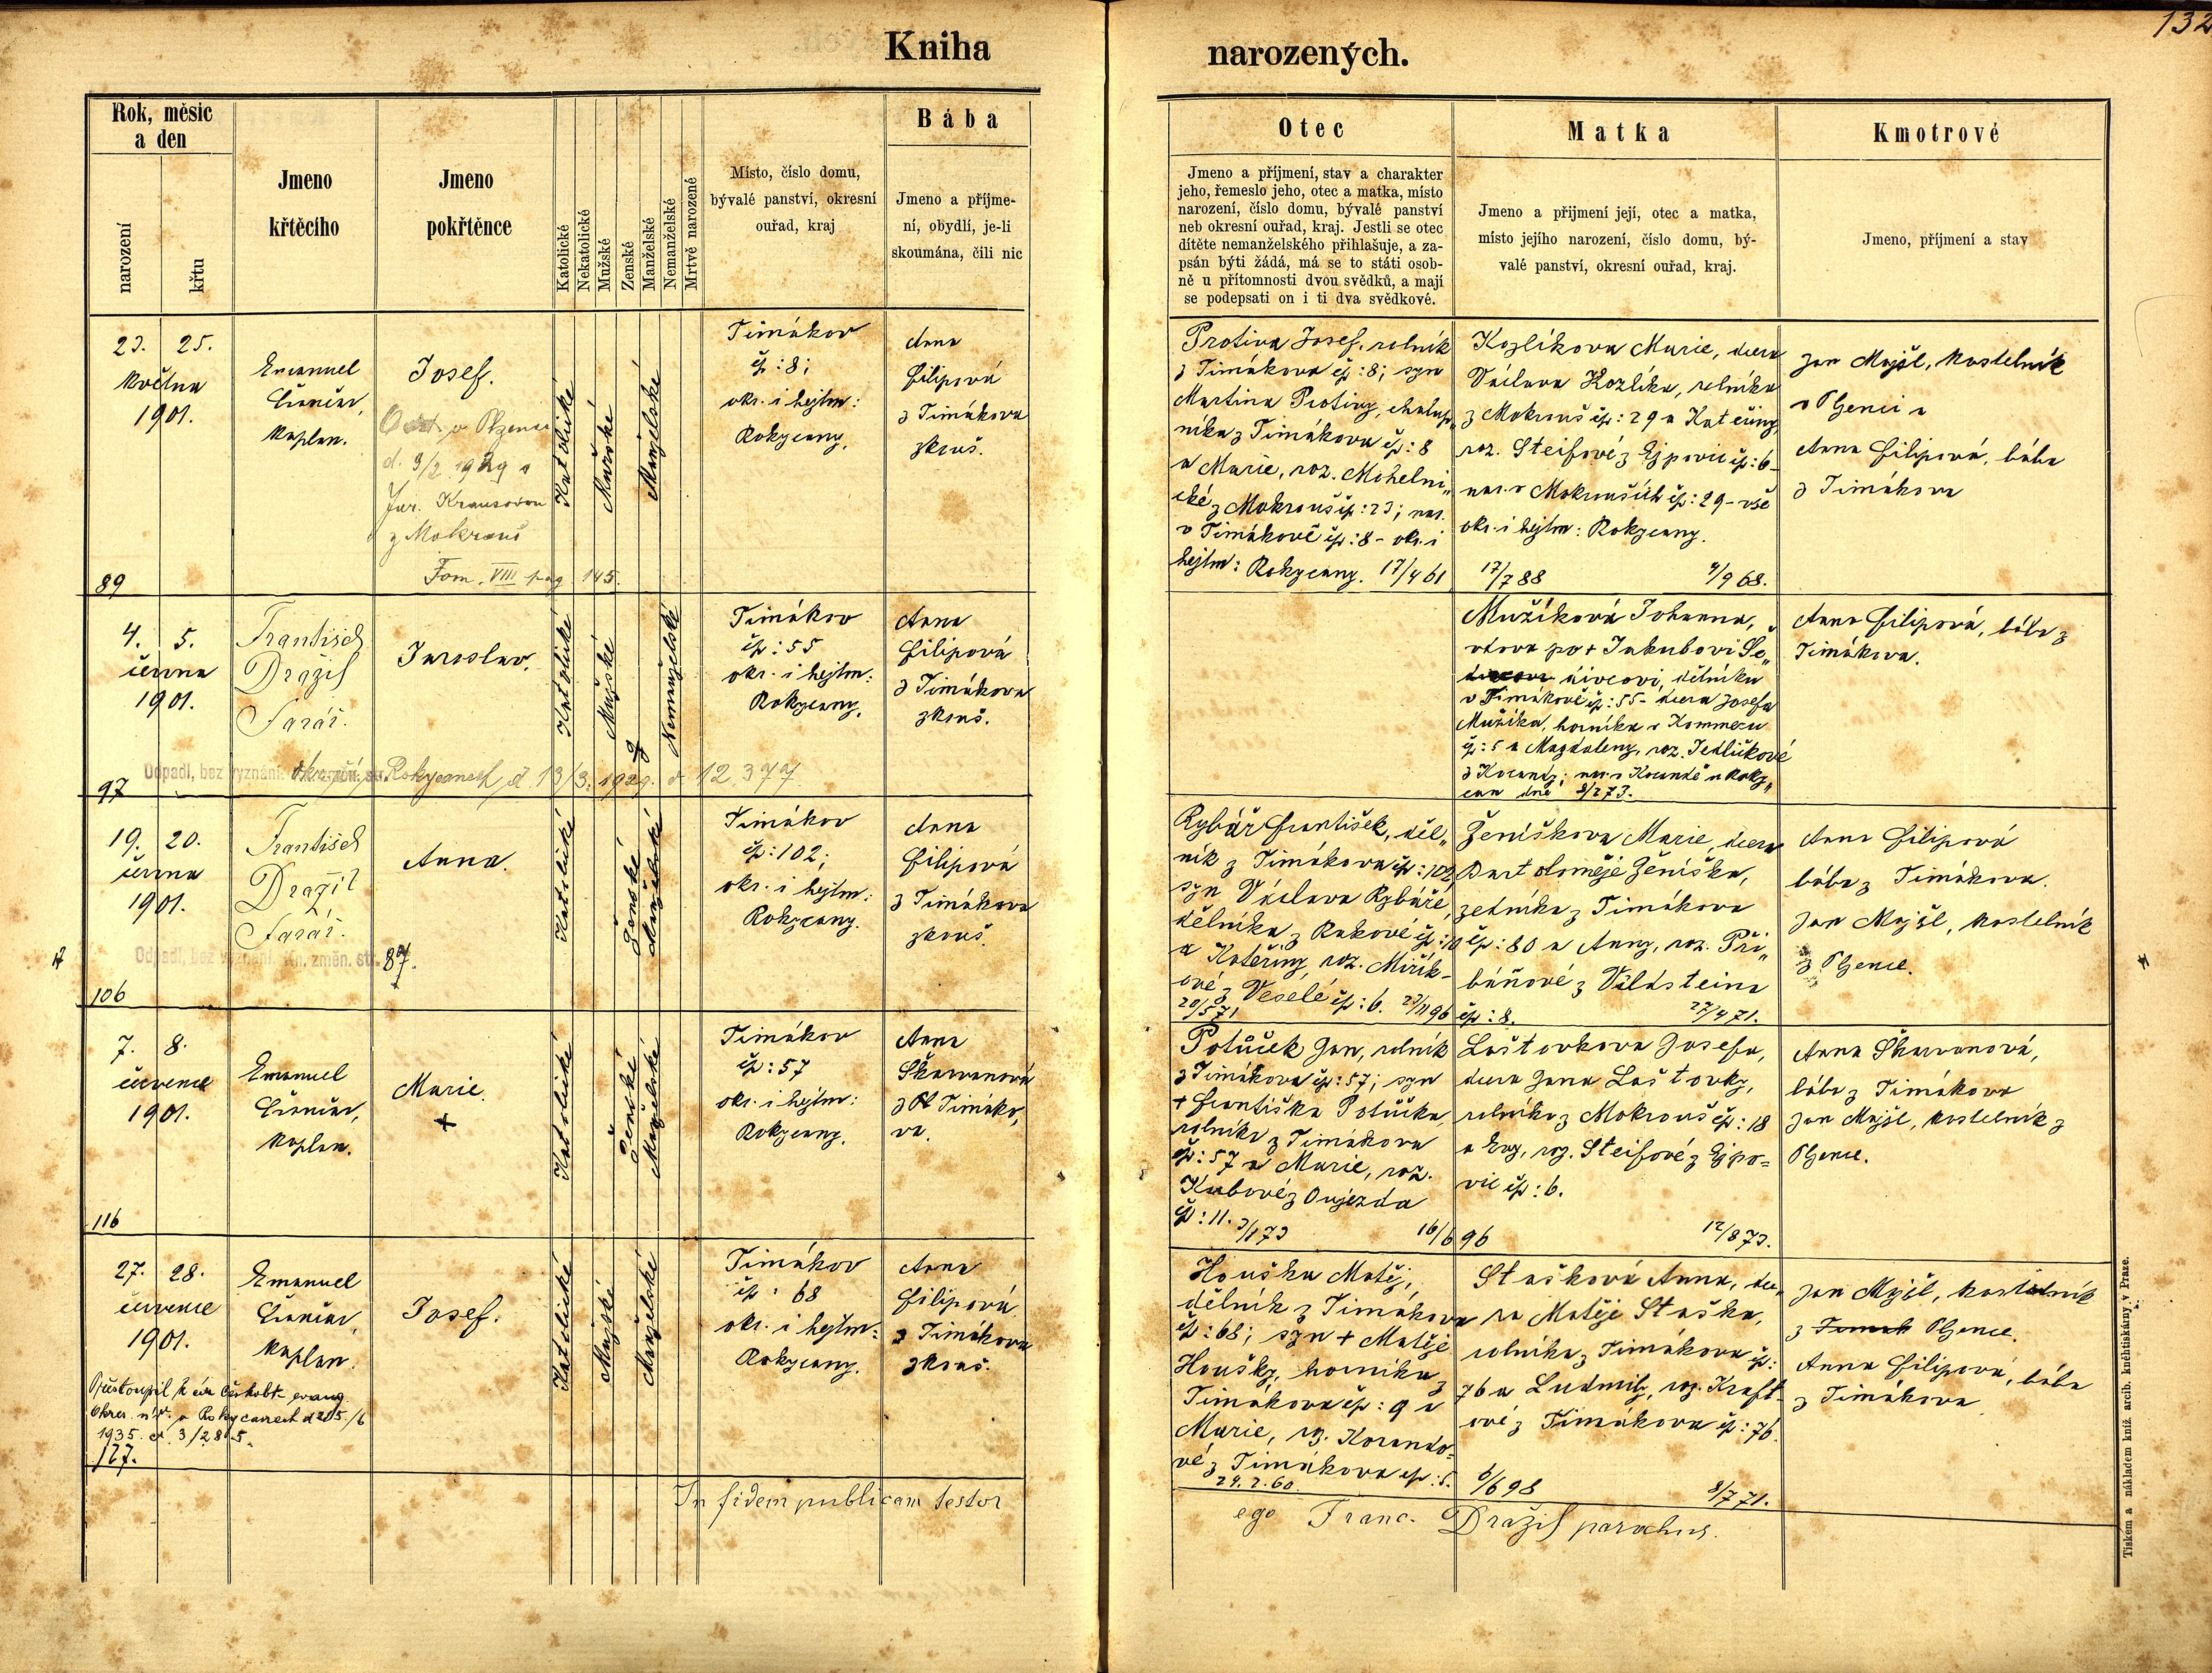 132
Kniha narozených.
Rok, měsíc
a den
narození
křtu
Jmeno
křtěcího
Jmeno
pokřtěnce
Katolické
Nekatolické
Mužské
Ženské
Manželské
Nemanželské
Mrtvě narozené
Místo, číslo domu,
bývalé panství, okresní
ouřad, kraj
Bába
Jmeno a příjme-
ní, obydlí, je-li
skoumána, čili nic
Otec
Jmeno a příjmení, stav a charakter
jeho, řemeslo jeho, otec a matka, místo
narození, číslo domu, bývalé panství
neb okresní ouřad, kraj. Jestli se otec
dítěte nemanželského přihlašuje, a za-
psán býti žádá, má se to státi osob-
ně u přítomnosti dvou svědků, a mají
se podepsati on i ti dva svědkové.
Matka
Jmeno a přijmení její, otec a matka,
místo jejího narození, číslo domu, bý-
valé panství, okresní ouřad, kraj.
Kmotrové
Jmeno, příjmení a stav
23. 25.
května
1901.
89
Emanuel
kaplan.
Josef.
v Plzenci
d. 9/2 1929 s
Krausovou
z Mokrouš
Tom. VIII pag 145.
Katolické
Mužské
Manželské
Timákov
čp: 8;
okr. i hejtm:
Rokycany.
Anna
Filipová
z Timákova
zkouš.
Protiva Josef, rolník
z Timákova čp: 8; syn
Martina Protivy, chalup„
níka z Timákova čp: 8
a Marie, roz. Mohelni„
cké z Mokrouš čp: 23; nar.
v Timákově čp: 8 - okr. i
hejtm: Rokycany. 17/4 61
Kozlíkova Marie, dcera
Václava Kozlíka, rolníka
z Mokrouš čp: 29 a Kateřiny,
roz. Steifové z Ejpovic čp: 6 -
nar. v Mokrouších čp: 29 - vše
okr. i hejtm: Rokycany.
17/7 88 4/9 68.
Jan Majšl, kostelník
v Plzenci a
Anna Filipová, bába
z Timákova
4. 5.
června
1901.
97
František
Dražil
Farář.
Jaroslav.
Katolické
Mužské
Nemanželské
Timákov
čp: 55
okr. i hejtm:
Rokycany.
Anna
Filipová
z Timákova
zkouš.
Odpadl, bez vyznání. Rokycanech d. 13/3. 1929. č 12.377
Mužíková Johanna,
vdova po + Jakubovi Še„
divcovi, dělníku
v Timákově čp: 55 - dcera Josefa
Mužíka, horníka v
čp: 5 a Magdaleny, roz. Jedličkové
z
can dne 8/2 73.
Anna Filipová, bába z
Timákova.
19. 20.
června
1901.
106
František
Dražil
Farář.
Anna.
Odpadl, bez vyznání. Kn. změn. str. 87.
Katolické
Ženské
Manželské
Timákov
čp: 102;
okr. i hejtm:
Rokycany.
Anna
Filipová
z Timákova
zkouš.
Rybář František, děl„
ník z Timákova čp: 102,
syn Václava Rybáře,
dělníka z Rakové čp: 10
a Kateřiny, roz. Miřík-
ové z Veselé čp: 6. 23/11 96
20/5 71
Ženíškova Marie, dcera
Bartoloměje Ženíška,
zedníka z Timákova
čp: 80 a Anny, roz. Při„
báňové z Vildsteina
čp: 8. 27/4 71.
Anna Filipová
bába z Timákova.
Jan Majšl, kostelník
z Plzence.
7. 8.
července
1901.
116
Emanuel
kaplan.
Marie.
+
Katolické
Ženské
Manželské
Timákov
čp: 57
okr. i hejtm:
Rokycany.
Anna
Škarvanová
z Timáko„
va.
Potůček Jan, rolník
z Timákova čp: 57; syn
+ Františka Potůčka,
rolníka z Timákova
čp: 57 a Marie, roz.
Kubové z Oujezda
čp: 11. 3/1 73 16/6 96
Laštovkova Josefa,
dcera Jana Laštovky,
rolníka z Mokrouš čp: 18
a Evy, roz. Steifové z Ejpo=
vic čp: 6.
12/8 73.
Anna Škarvanová,
bába z Timákova
Jan Majšl, kostelník z
Plzence.
27. 28.
července
1901.
Přestoupil k círk českobr. evang
Okres. úř. v Rokycanech d 25/6
1935. čt. 3/285.
127.
Emanuel
kaplan.
Josef.
Katolické
Mužské
Manželské
Timákov
čp: 68
okr. i hejtm:
Rokycany.
Anna
Filipová
z Timákova
zkouš.
Houška Matěj,
dělník z Timákova
čp: 68; syn + Matěje
Houšky, horníka z
Timákova čp: 9 a
Marie, roz. Korando=
vé z Timákova čp: 5.
24. 2. 60.
Stašková Anna, dce„
ra Matěje Staška,
rolníka z Timákova čp:
76 a Ludmily, roz. Kraft-
ové z Timákova čp: 76.
6/6 98 8/7 71.
Jan Majšl, kostelník
z Plzence.
Anna Filipová, bába
z Timákova
In fidem publicam testor
ego Franc. Dražil parochus.
Tiskem a nákladem kníž. arcib. knihtiskárny v Praze.